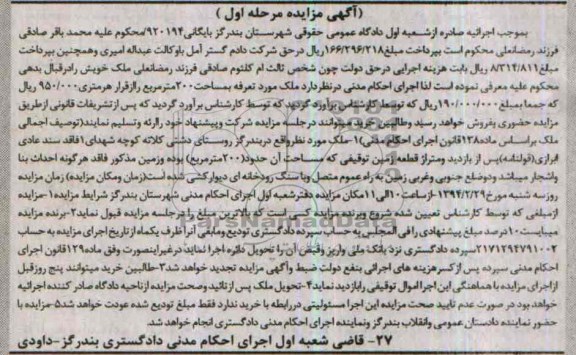 (آگهی مزایده مرحله اول )
بموجب اجرائیه صادره ازشعبه اول دادگاه عمومی حقوقی شهرستان بندرگز بایگانی۹۲۰۱۹۴/محکوم علیه محمد باقر صادقی
فرزند رمضانعلی محکوم است بپرداخت مبلغ۱۶۶/۲۹۶/۲۱۸ریال درحق شرکت دادم گستر آمل باوکالت عبداله امیری وهمچنین بپرداخت
مبلغ۸/۳۱۴/۸۱۱ ریال بابت هزینه اجرایی درحق دولت چون شخص ثالث ام کلثوم صادقی فرزند رمضانعلی ملک خویش رادرقبال بدهی
محکوم علیه معرفی نموده است لذا اجرای احکام مدنی درنظردارد ملک مورد تعرفه بمساحت۲۰۰مترمربع راازقرار هرمتری۹۵۰/۰۰۰ریال
که جمعا بمبلغ۱۹۰/۰۰۰/۰۰۰ریال که توسط کارشناس برآورد گردید که توسط کارشناس برآورد گردید که پس ازتشریفات قانونی ازطریق
مزایده حضوری بفروش خواهد رسید وطالبین خرید میتوانند درجلسه مزایده شرکت وپیشنهاد خود راارئه وتسلیم نمایند(توصیف اجمالی
ملک براساس ماده۱۳۸قانون اجرای احکام مدنی)۱-ملک مورد نظرواقع دربندرگز روستای دشتی کلاته کوچه شهدای۱فاقد سند عادی
افرازی(قولنامه)پس از بازدید ومتراژ قطعه زمین توقیفی که مساحت آن حدود(۲۰۰مترمربع) بوده وزمین مذکور فاقد هرگونه احداث بنا
واشجار میباشد ودوضلع جنوبی وغربی زمین به راه عموم متصل وباسنگ رودخانه ای دیوارکشی شده است(زمان ومکان مزایده) زمان مزایده
روزسه شنبه مورخ۱۳۹۴/۲/۲۹-ازساعت۱۰الی۱۱مکان مزایده دفترشعبه اول اجرای احکام مدنی شهرستان بندرگز شرایط مزایده۱-مزایده
ازمبلغی که توسط کارشناس تعیین شده شروع وبرنده مزایده کسی است که بالاترین مبلغ رادرجلسه مزایده قبول نماید۲-برنده مزایده
میبایست۱۰درصد مبلغ پیشنهادی را فی المجلس به حساب سپرده دادگستری تودیع ومابقی آنرا ظرف یکماه ازتاریخ اجرای مزایده به حساب
۲۱۷۱۲۹۴۷۹۱۰۰۲سپرده دادگستری نزد بانک ملی واریز وفیش آن را تحویل دائره اجرا نماید درغیراینصورت وفق ماده۱۲۹قانون اجرای
احکام مدنی سپرده پس ازکسرهزینه های اجرائی بنفع دولت ضبط وآگهی مزایده تجدید خواهد شد۳-طالبین خرید میتوانند پنج روزقبل
ازاجرای مزایده با هماهنگی این اجرا اموال توقیفی رابازدید نماید۴-تحویل ملک پس ازتائید وصحت مزایده ازناحیه دادگاه صادر کننده اجرائیه
خواهد بود در صورت عدم تایید صحت مزایده این اجرا مسئولیتی دررابطه با خرید ندارد فقط مبلغ تودیع شده عودت خواهد شد۵-مزایده با
حضور نماینده دادستان عمومی وانقلاب بندرگز ونماینده اجرای احکام مدنی دادگستری انجام خواهد شد.
۲۷- قاضی شعبه اول اجرای احکام مدنی دادگستری بندرگز-داودی